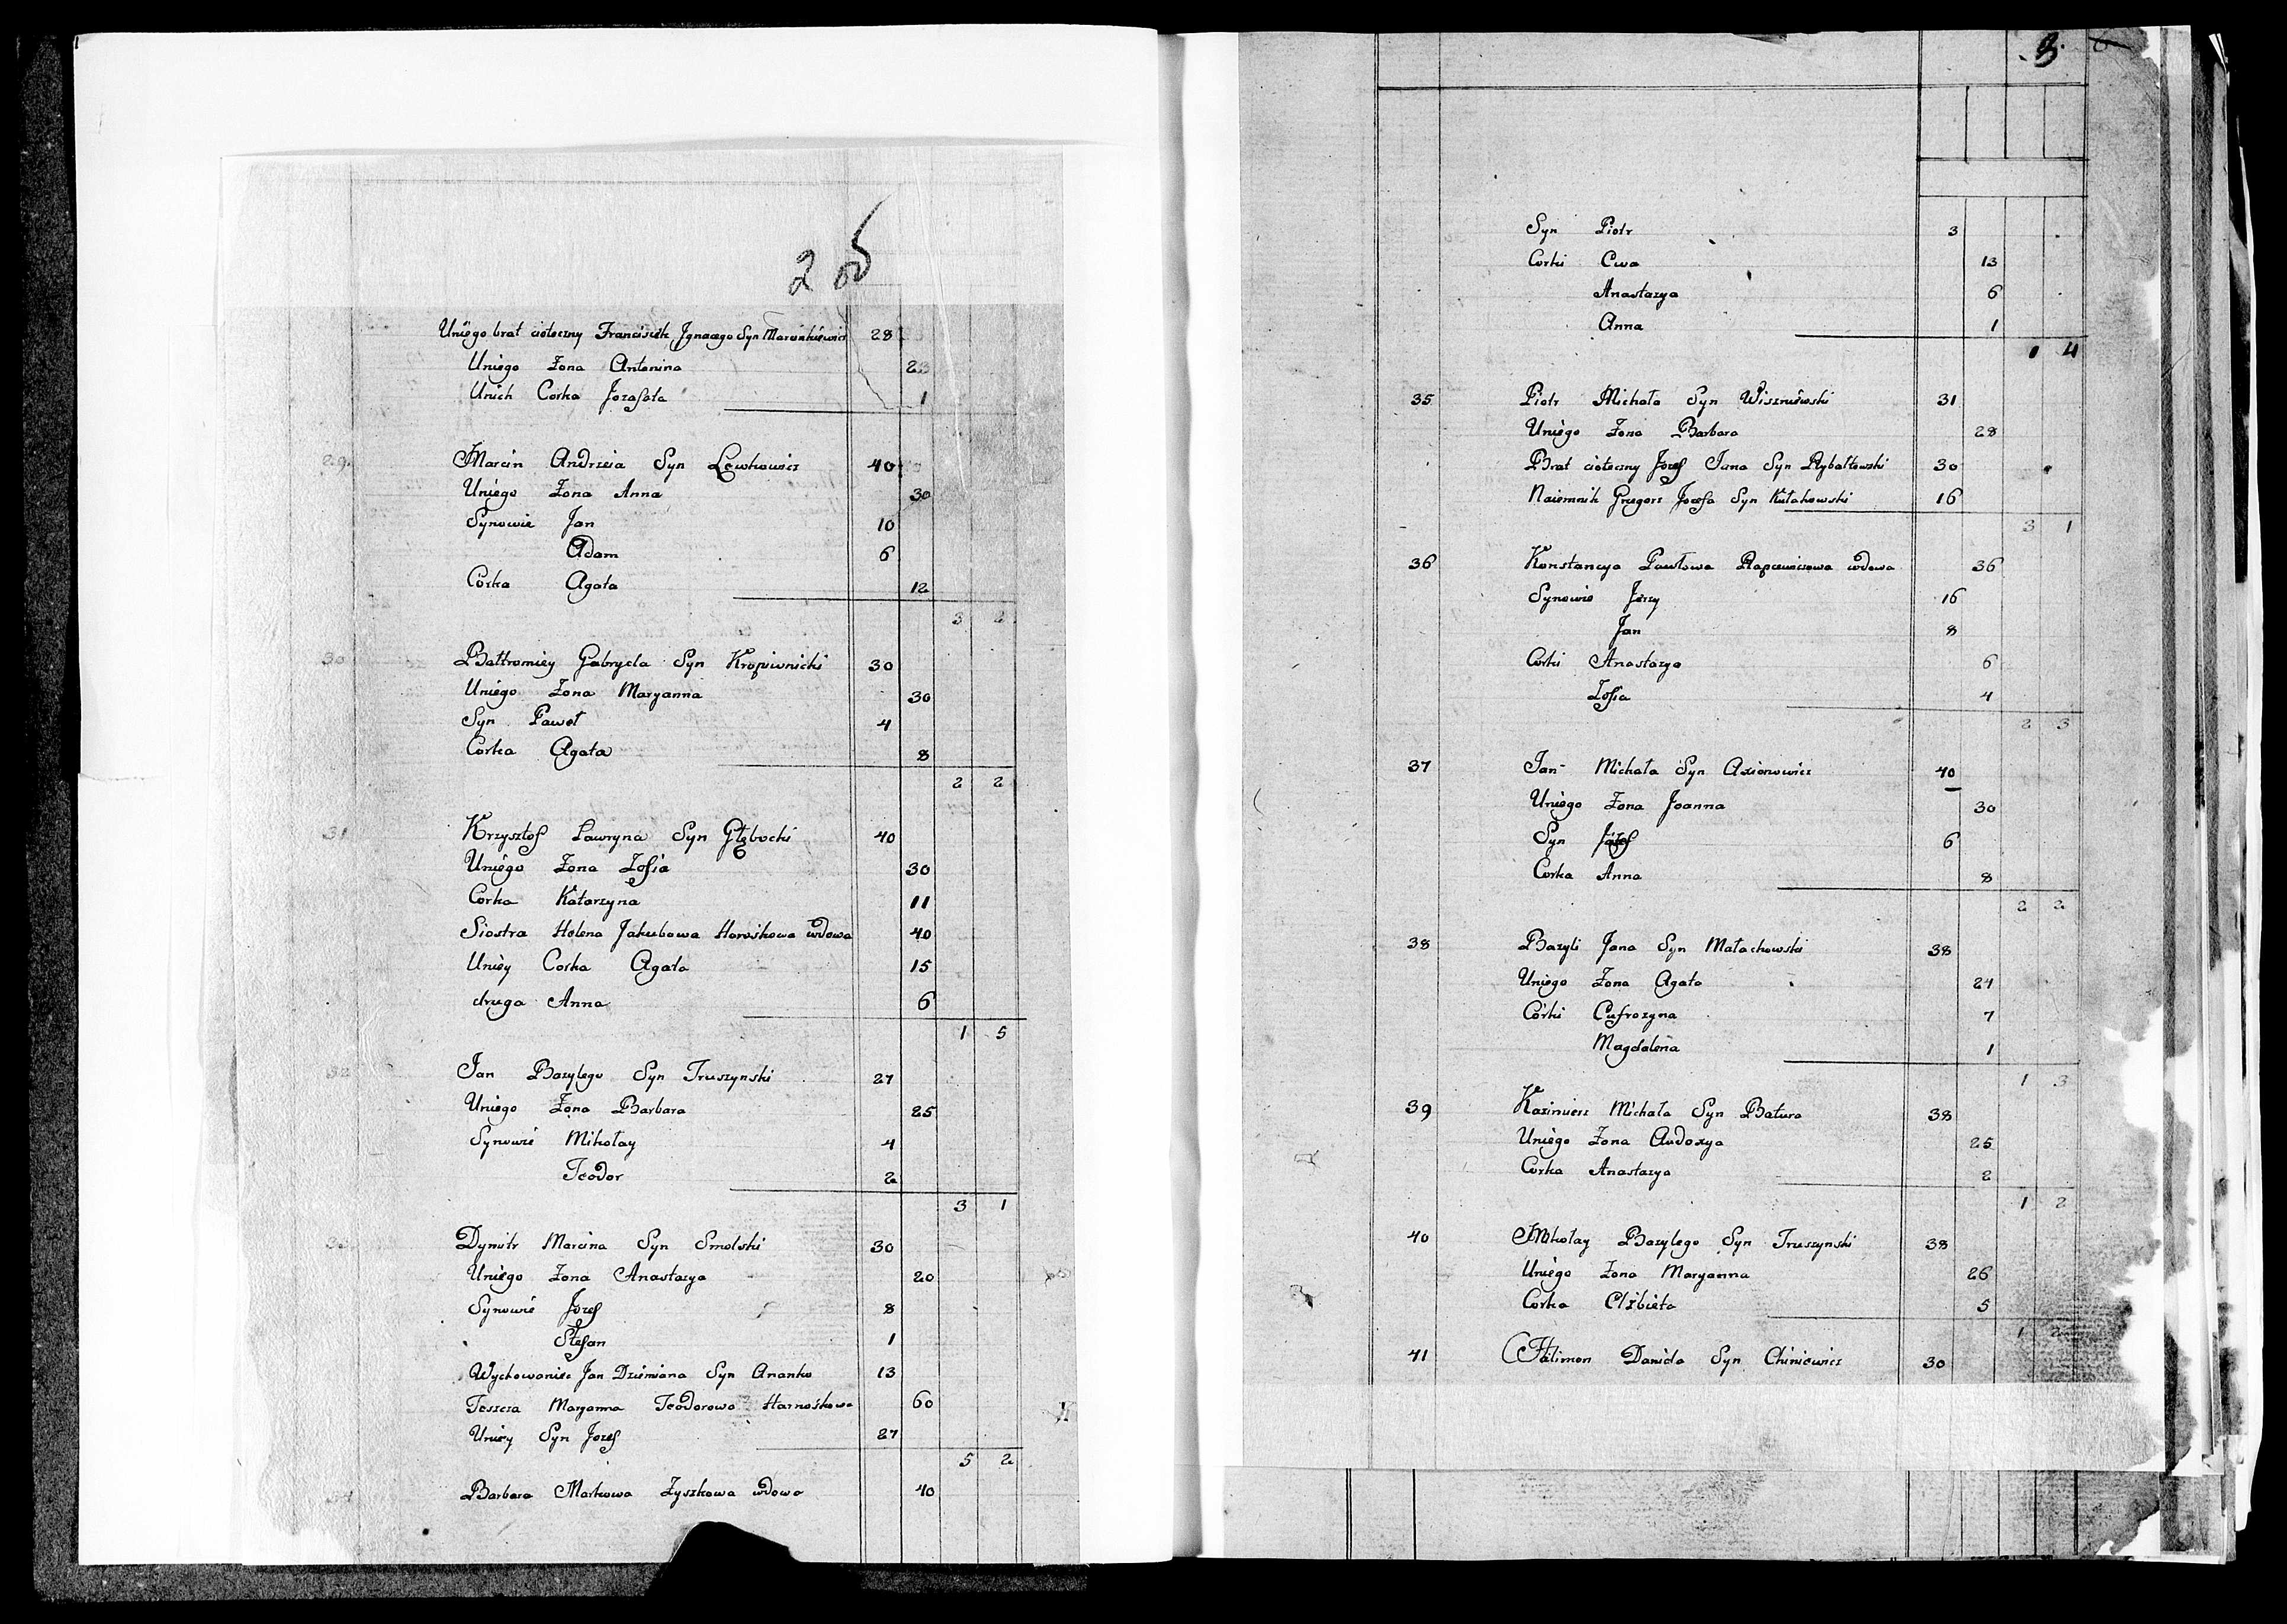 2 об
Uniego brat cioteczny Franciszek Jgnacego Syn Marcinkiewicz 28
Uniego Zona Antonina 23
Unich Corka Jozafata 1
29. Marcin Andrzeia Syn Lewkowicz 40
Uniego Zona Anna 30
Synowie Jan 10
Adam 6
Córka Agata 12
3 2
30 Bałtromiey Gabryela Syn Kropiwnicki 30
Uniego Zona Maryanna 30
Syn Paweł 4
Corka Agata 8
2 2
31 Krzysztof Lawryna Syn Głębocki 40
Uniego Zona Zofia 30
Corka Katarzyna 11
Siostra Helena Jakubowa Haraśkowa wdowa 40
Uniey Corka Agata 15
druga Anna 6
1 5
32 Jan Bazylego Syn Truszynski 27
Uniego Zona Barbara 25
Synowie Mikołay 4
Teodor 2
3 1
33 Dymitr Marcina Syn Smolski 30
Uniego Zona Anastazya 20
Synowie Jozef 8
Stefan 1
Wychowaniec Jan Dziemiana Syn Ananko 13
Teszcza Maryanna Teodorowa Harnośkowa 60
Uniey Syn Jozef 27
5 2
34 Barbara Markowa Zyszkowa wdowa 40
3.
Syn Piotr 3
Corki Ewa 13
Anastazya 6
Anna 1
1 4
35 Piotr Michała Syn Wiszniewski 31
Uniego Zona Barbara 28
Brat cioteczny Jozef Jana Syn Rybałtowski 30
Naiemnik Grzegorz Jozefa Syn Kułakowski 16
3 1
36 Konstancya Pawłowa Rapcewiczowa wdowa 36
Synowie Jerzy 16
Jan 8
Corki Anastazya 6
Zofia 4
2 3
37 Jan Michała Syn Axionowicz 40
Uniego Zona Joanna 30
Syn Józef 6
Corka Anna 8
2 2
38 Bazyli Jana Syn Małachowski 38
Uniego Zona Agata 24
Córki Eufrozyna 7
Magdalena 1
1 3
39 Kazimierz Michała Syn Batura 38
Uniego Zona Audoxya 25
Corka Anastazya 2
1 2
40 Mikołay Bazylego Syn Truszynski 38
Uniego Zona Maryanna 26
Corka Elżbieta 5
1 2
41 Filimon Daniela Syn Chiniewicz 30